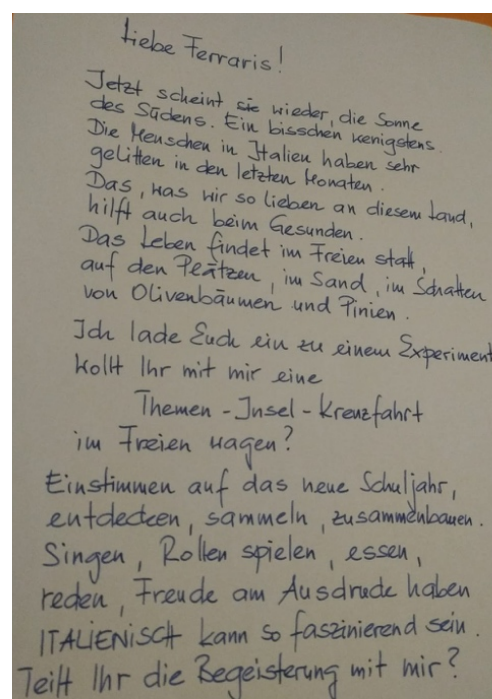 Liebe Ferraris!
Jetzt scheint sie wieder, die Sonne
des Südens. Ein bisschen wenigstens.
Die Menschen in Italien haben sehr
gelitten in den letzten Monaten.
Das, was wir so lieben an diesem Land,
hilft auch beim Gesunden.
Das Leben findet im Freien statt,
auf den Plätzen, im Sand, im Schatten
von Olivenbäumen und Pinien.
Ich lade Euch ein zu einem Experiment
Wollt Ihr mit mir eine
Themen-Insel-Kreuzfahrt
im Freien wagen?
Einstimmen auf das neue Schuljahr,
entdecken, sammeln, zusammenbauen.
Singen, Rollen spielen, essen,
reden, Freude am Ausdruck haben
ITALIENISCH kann so faszinierend sein.
Teilt Ihr die Begeisterung mit mir?